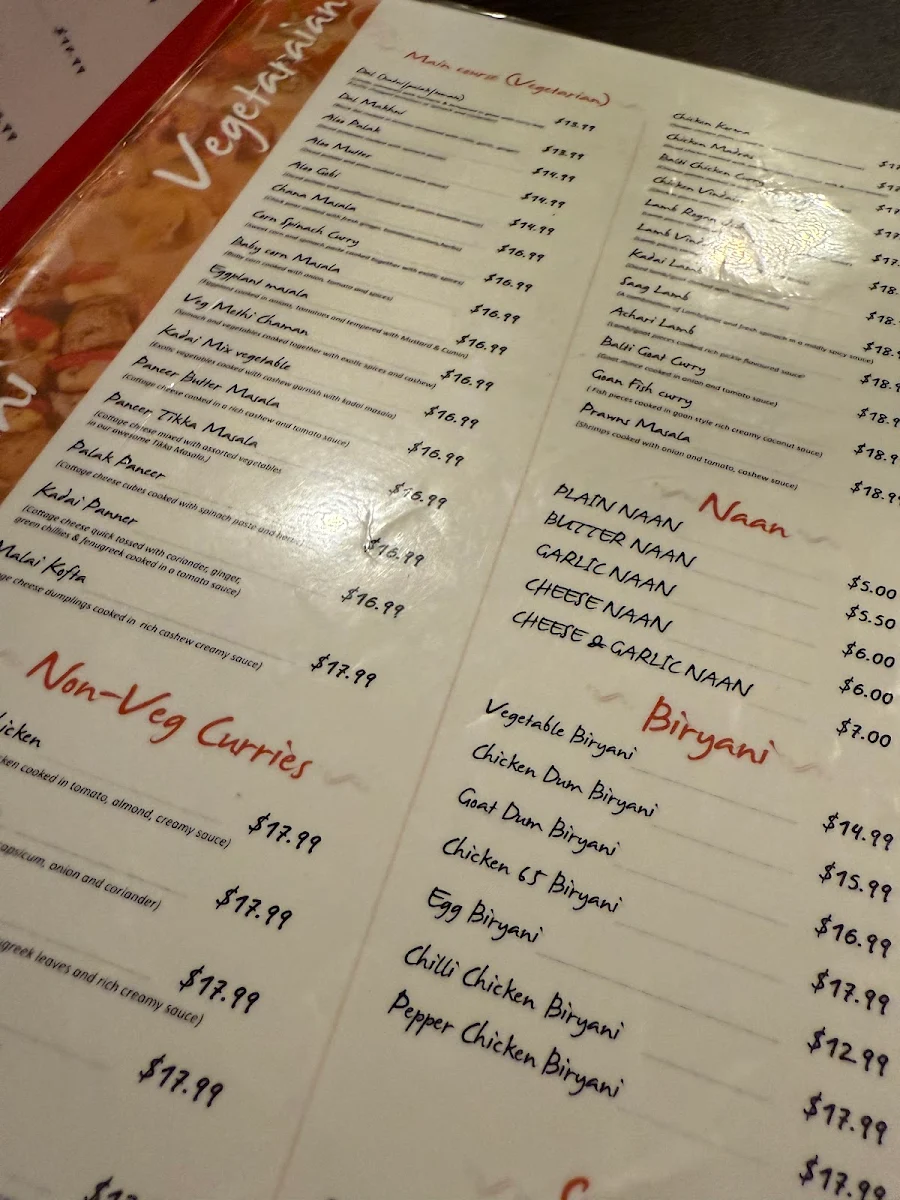 Vegetaraian
Main course (Vegetarian)
$13.99
Dal Makhni
$13.99
Aloo Palak
$14.99
Aloo Mutter
$14.99
Aloo Gobi
$14.99
Chana Masala
$16.99
Corn Spinach Curry
$16.99
Baby corn Masala
$16.99
Eggplant masala
(Eggplant cooked in onions, tomatoes and tempered with Mustard & Cumin)
$16.99
Veg Methi Chaman
(Spinach and vegetables cooked together with exotic spices and cashew)
$16.99
Kadai Mix vegetable
(Exotic vegetables cooked with cashew gurnish with kadai masala)
$16.99
Paneer Butter Masala
(Cottage cheese cooked in a rich cashew and tomato sauce)
$16.99
Paneer Tikka Masala
(Cottage cheese mixed with assorted vegetables
in our awesome Tikka Masala.)
$16.99
Palak Paneer
(Cottage cheese cubes cooked with spinach paste and herbs)
$16.99
Kadai Panner
(Cottage cheese quick tossed with coriander, ginger,
green chillies & fenugreek cooked in a tomato sauce)
$16.99
Malai Kofta
cheese dumplings cooked in rich cashew creamy sauce)
$17.99
Non-Veg Curries
cooked in tomato, almond, creamy sauce)
$17.99
onion and coriander)
$17.99
leaves and rich creamy sauce)
$17.99
$17.99
Chicken Korma
Chicken Madras
Balti Chicken Curry
Chicken
Lamb Rogan
Lamb
Kadai Lamb
Saag Lamb
Achari Lamb
(Lamb pieces cooked rich pickle flavoured sauce)
Balti Goat Curry
(Goat sauce cooked in onion and tomato sauce)
Goan Fish curry
(Fish pieces cooked in goan style rich creamy coconut sauce)
Prawns Masala
(Shrimps cooked with onion and tomato, cashew sauce)
Naan
PLAIN NAAN
$5.00
BUTTER NAAN
$5.50
GARLIC NAAN
$6.00
CHEESE NAAN
$6.00
CHEESE & GARLIC NAAN
$7.00
Biryani
Vegetable Biryani
$14.99
Chicken Dum Biryani
$15.99
Goat Dum Biryani
$16.99
Chicken 65 Biryani
$17.99
Egg Biryani
$12.99
Chilli Chicken Biryani
$17.99
Pepper Chicken Biryani
$17.99